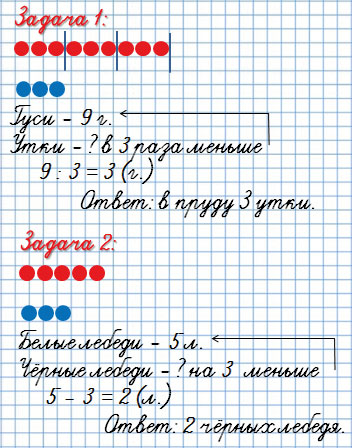 Задача 1:
Гуси – 9 г.
Утки – ? в 3 раза меньше
9 : 3 = 3 (г.)
Ответ: в пруду 3 утки.
Задача 2:
Белые лебеди – 5 л.
Чёрные лебеди – ? на 3 меньше
5 – 3 = 2 (л.)
Ответ: 2 чёрных лебедя.